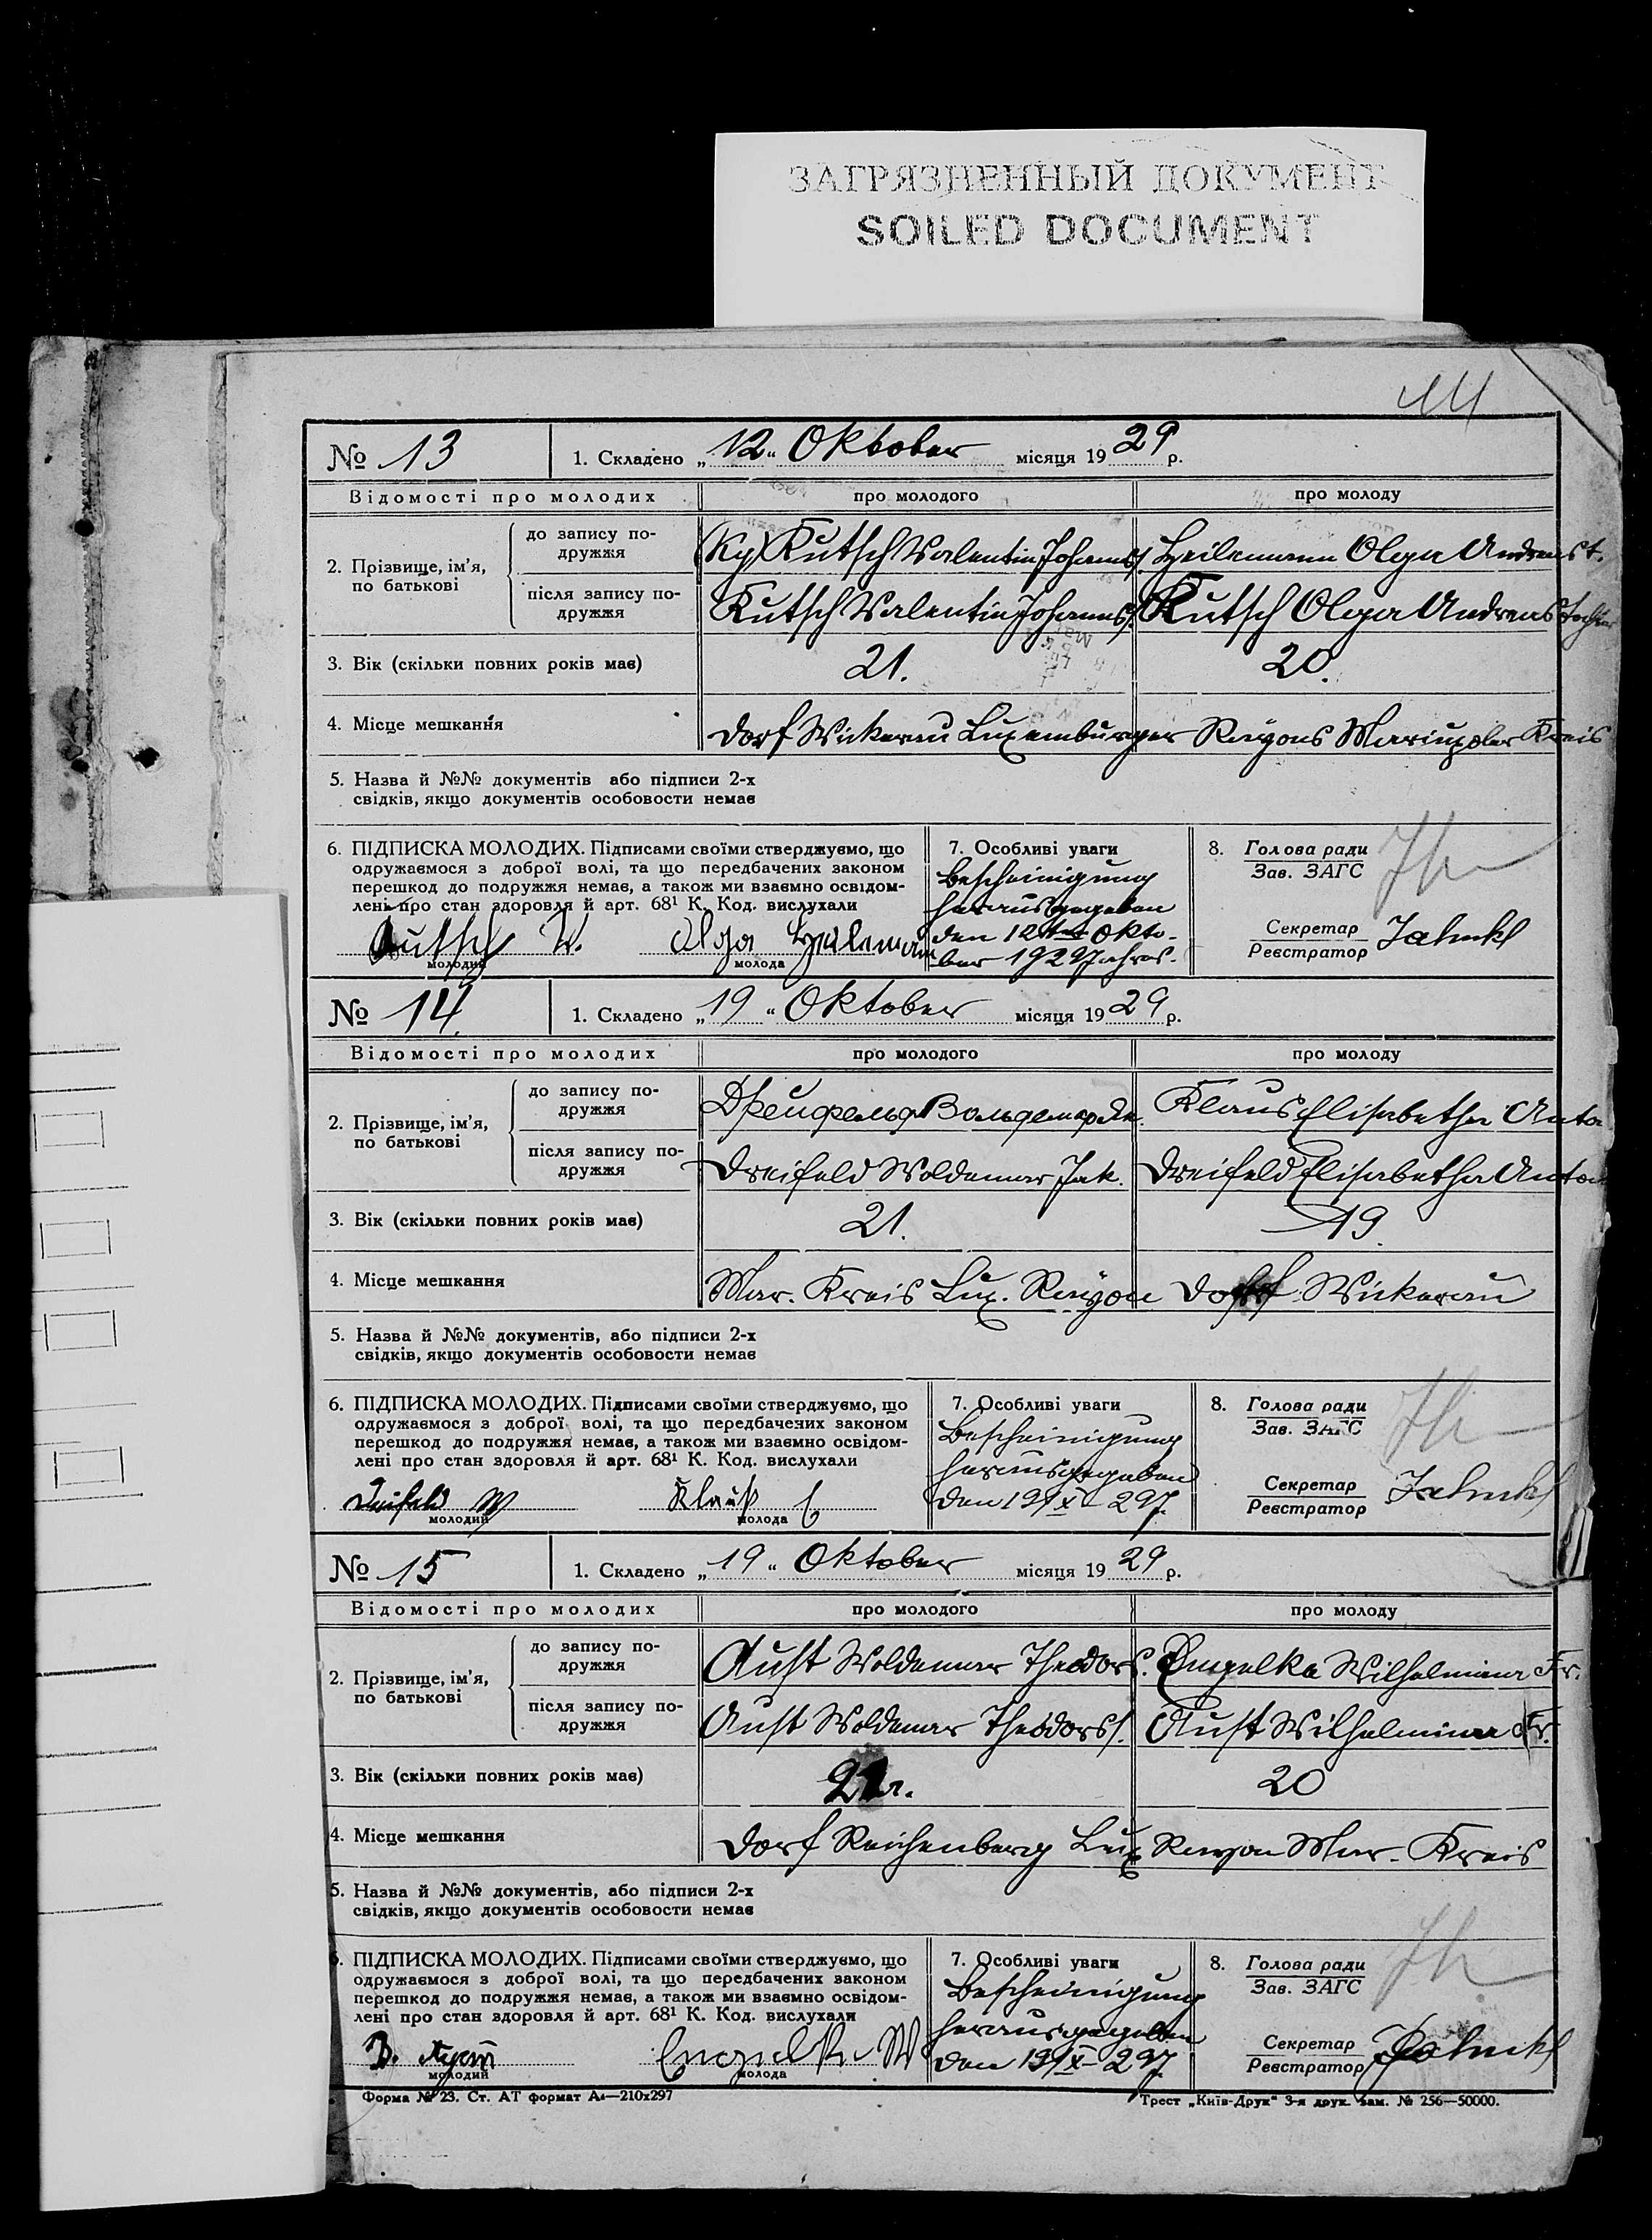 ЗАГРЯЗНЕННЫЙ ДОКУМЕНТ
SOILED DOCUMENT
№ 13 1. Складено „12“ Oktober місяця 1929 р.
Відомості про молодих про молодого про молоду
2. Прізвище, ім’я, по батькові
до запису подружжя (Ку) Kutsch Valentin Johannes/. Heilemann Olga Andreas t.
після запису подружжя Kutsch Valentin Johannes/. Kutsch Olga Andreas Tochter
3. Вік (скільки повних років має) 21. 20.
4. Місце мешкання Dorf Wickerau Luxemburger Rayons Mariupoler Kreis
5. Назва й №№ документів або підписи 2-х
свідків, якщо документів особовости немає
6. ПІДПИСКА МОЛОДИХ. Підписами своїми стверджуємо, що
одружаємося з доброї волі, та що передбачених законом
перешкод до подружжя немає, а також ми взаємно освідом-
лені про стан здоровля й арт. 68¹ К. Код. вислухали
Kutsch V. Olga Heilemann
молодий молода
7. Особливі уваги
Bescheinigung
herausgegeben
den 12ten Okto-
ber 1929 Jahres.
8. Голова ради
Зав. ЗАГС
Секретар
Реєстратор
№ 14. 1. Складено „19“ Oktober місяця 1929 р.
Відомості про молодих про молодого про молоду
2. Прізвище, ім’я, по батькові
до запису подружжя Дрейфельд Вольдемар Як. Klaus Elisabetha Anto
після запису подружжя Dreifeld Woldemar Jak. Dreifeld Elisabetha Anton
3. Вік (скільки повних років має) 21. 19.
4. Місце мешкання Mar. Kreis Lux. Rayon Dorf Wickerau
5. Назва й №№ документів, або підписи 2-х
свідків, якщо документів особовости немає
6. ПІДПИСКА МОЛОДИХ. Підписами своїми стверджуємо, що
одружаємося з доброї волі, та що передбачених законом
перешкод до подружжя немає, а також ми взаємно освідом-
лені про стан здоровля й арт. 68¹ К. Код. вислухали
Dreifeld W Klauß E
молодий молода
7. Особливі уваги
Bescheinigung
herausgegeben
den 19/X-29 J.
8. Голова ради
Зав. ЗАГС
Секретар
Реєстратор
№ 15 1. Складено „19“ Oktober місяця 1929 р.
Відомості про молодих про молодого про молоду
2. Прізвище, ім’я, по батькові
до запису подружжя Aust Woldemar Theodors. Engelke Wilhelmina Fr.
після запису подружжя Aust Woldemar Theodors/. Aust Wilhelmina Fr.
3. Вік (скільки повних років має) 20
4. Місце мешкання Dorf Reichenberg Lux Rayon Mar. Kreis
5. Назва й №№ документів, або підписи 2-х
свідків, якщо документів особовости немає
6. ПІДПИСКА МОЛОДИХ. Підписами своїми стверджуємо, що
одружаємося з доброї волі, та що передбачених законом
перешкод до подружжя немає, а також ми взаємно освідом-
лені про стан здоровля й арт. 68¹ К. Код. вислухали
В. Ауст W
молодий молода
7. Особливі уваги
Bescheinigung
herausgegeben
den 19/X-29 J.
8. Голова ради
Зав. ЗАГС
Секретар
Реєстратор
Форма № 23. Ст. АТ формат А4—210х297 Трест „Київ-Друк“ 3-я друк. Зам. № 256—50000.